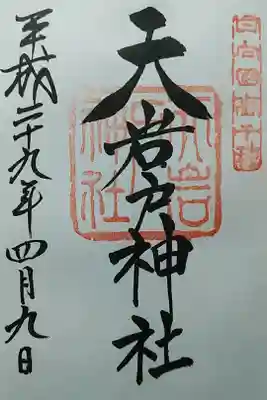 日向国高千穂
天岩戸神社
天岩
戸神社
平成二十九年四月九日